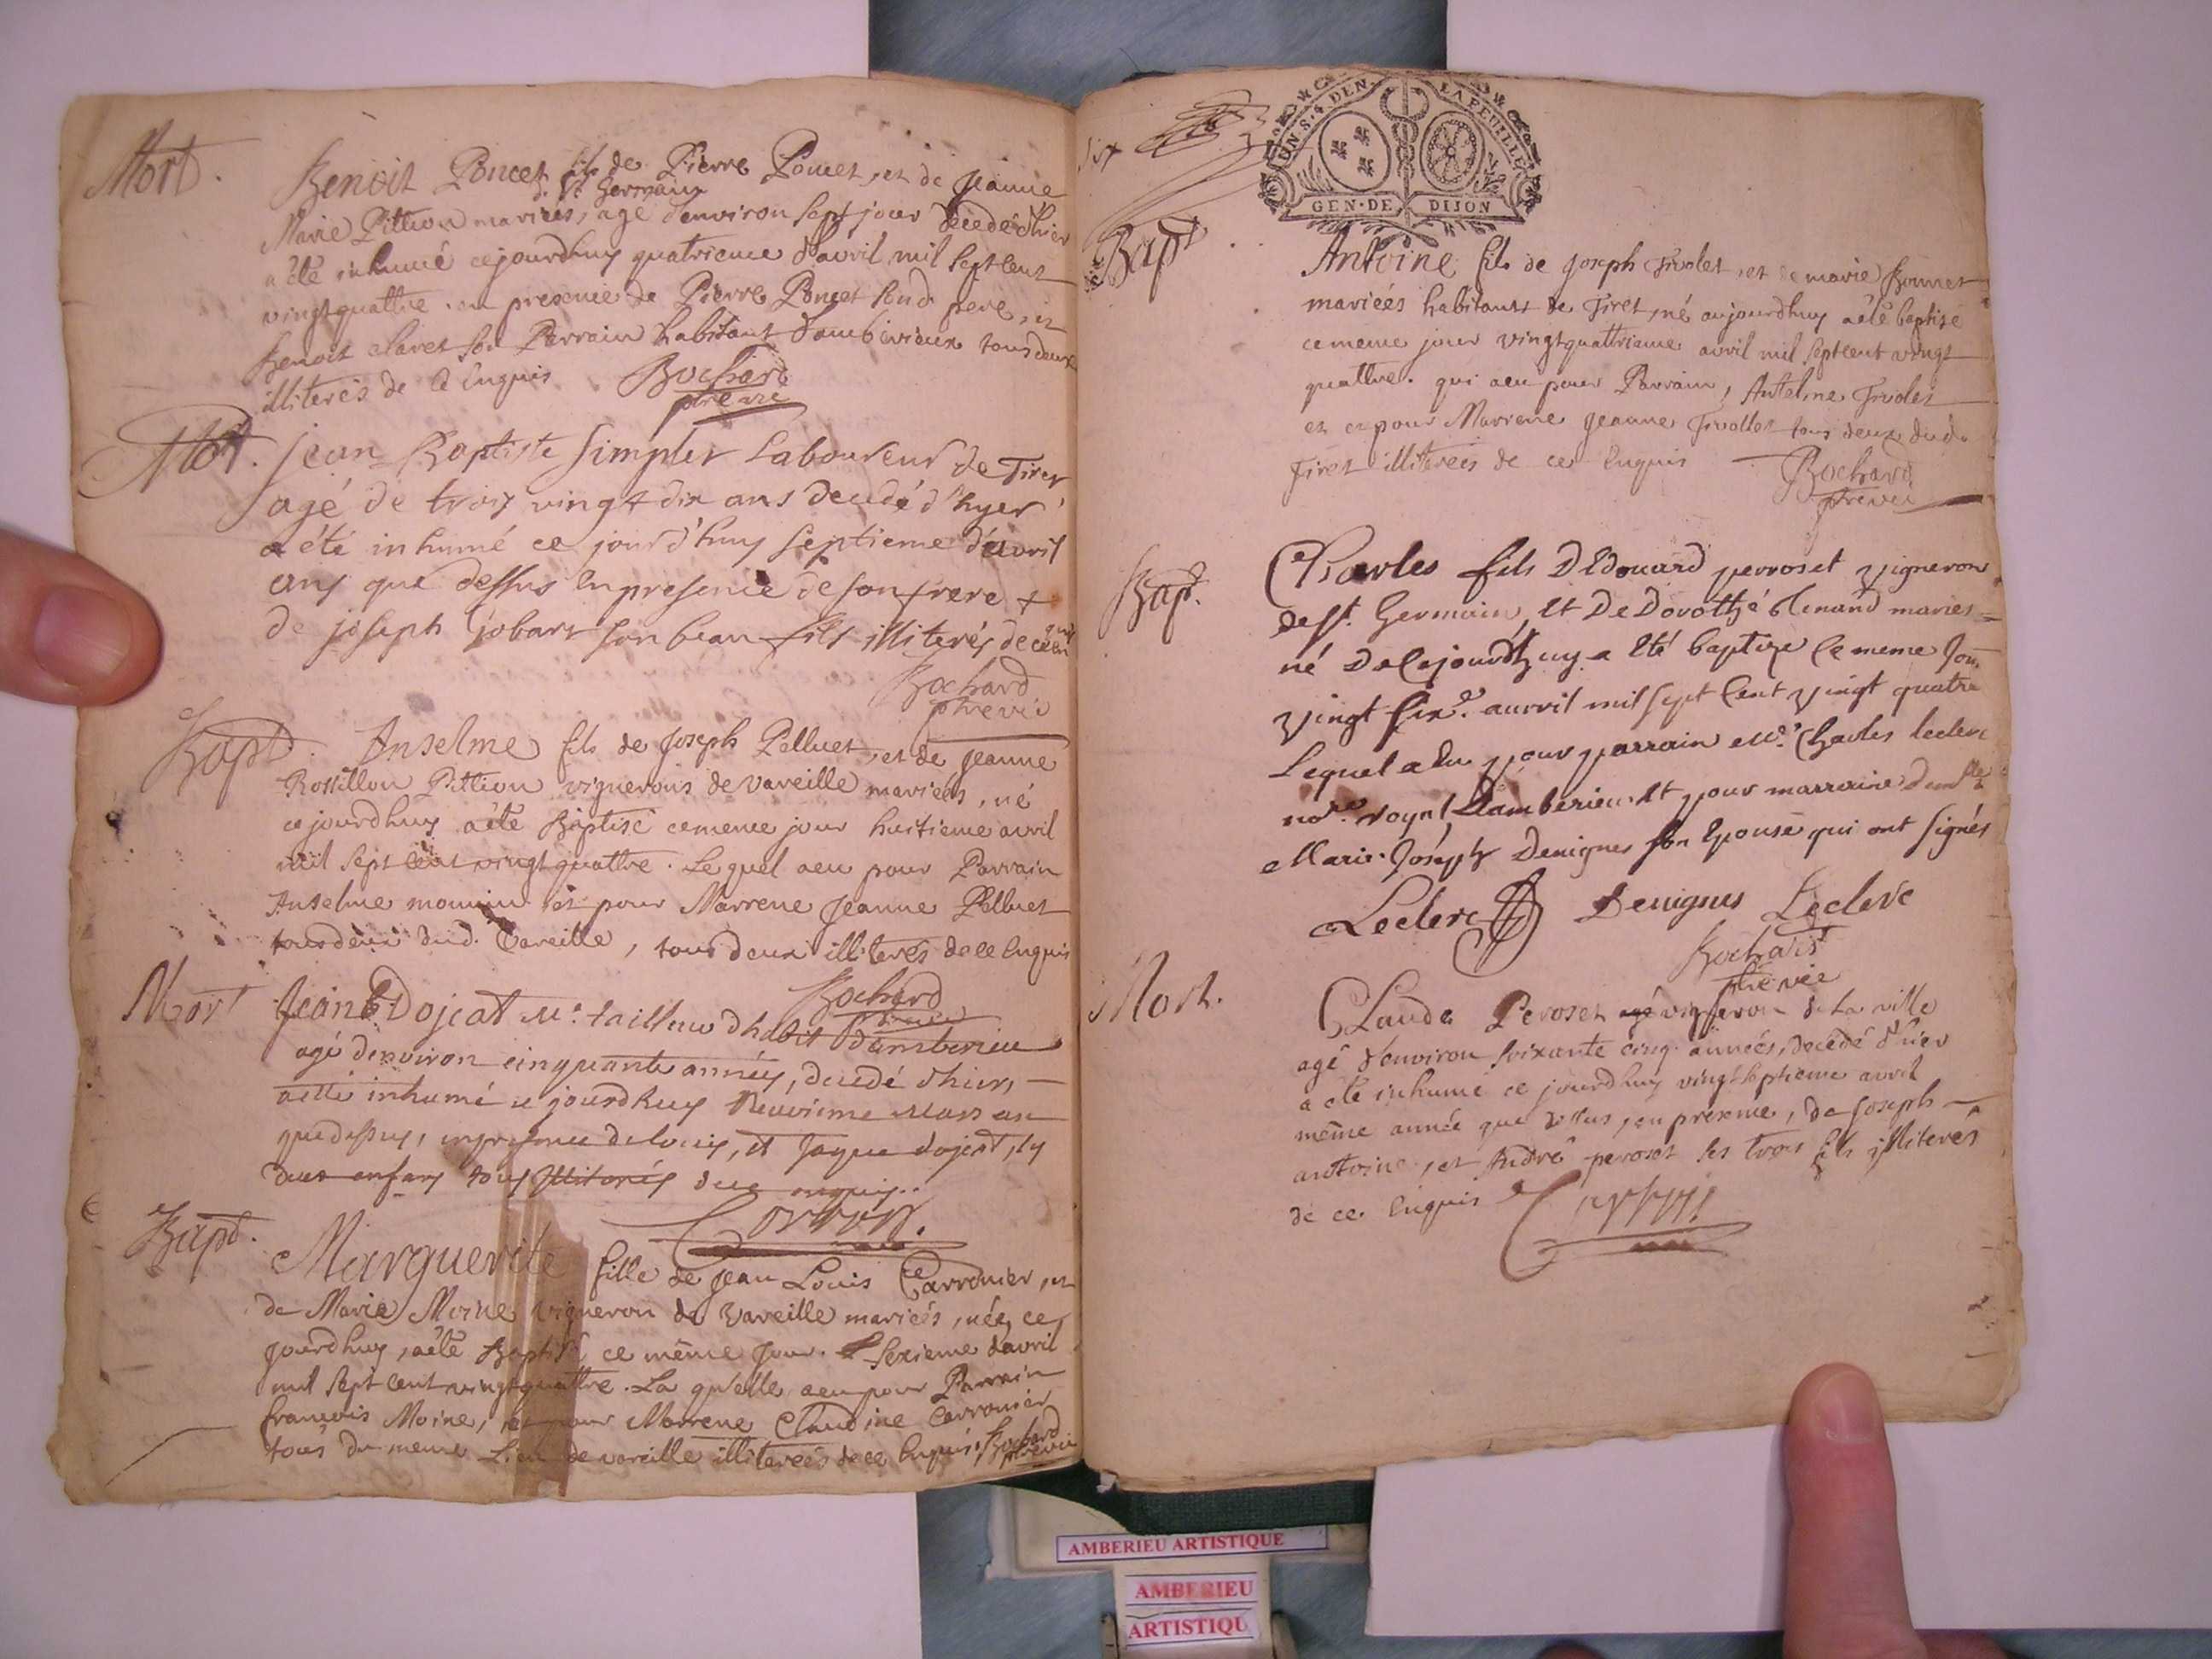 Mort.
Benoit Poncet fils de Pierre Poncet, et de jeanne
d. St Germain
Marie Pittion mariées, agé d'environ sept jour decedé d'hier
a été inhumé cejourdhuy quatrieme d'avril mil sept cent
vingtquattre. en presence de Pierre Poncet sond. pere, et
Benoit claret son Parrain habitant d'ambérieux tous deux
illiterés de ce Enquis Bochard
ptre vic
Mort. jean Baptiste simpler Laboureur de Tiret
agé de trois vingt dix ans decedé d'hyer
a été inhumé ce jourd'huy septieme d'avril
ans que dessus en presence de son frere &
de joseph jobart son beau fils illiterés de ce enquis
Bochard
ptre vic
Bapt. Anselme fils de joseph Pelluet, et de jeanne
Rossillon Pittion vignerons de vareille mariées, né
cejourdhuy a été Baptisé cememe jour huitieme avril
mil sept cent vingt quattre. Le quel a eu pour Parrain
Anselme monnin et pour Marrene jeanne Pelluet
tous deux dud. vareille, tous deux illiterés de ce Enquis
Bochard
ptre vic
Mort Jean Dojeat Me. tailleur d'habit d'amberieu
agé denviron cinquante années, decedé d'hier,
a esté inhumé ce jourdhuy neuvieme mars an
que dessus, en presence de louis, et Jaque dojeat, ses
deux enfans tous illiterés de ce enquis..
Bapt. Marguerite fille de jean Louis Carronier, et
de Marie Moine vigneron de vareille mariées, née ce
jourdhuy, a été Baptisé ce même jour. sexieme d'avril
mil sept cent vingtquattre. La qu'elle a eu pour Parrain
francois Moine, et pour Marrene Claudine Carronier
tous du meme Lieu de vareille illiterées de ce Enquis, Bochard
ptre vic
dix
UN.S.4 DEN. LA FEUILLE
GEN.DE DIJON
Bapt
Antoine fils de joseph Tivolet, et de marie Bonnet
mariées habitants de Tiret, né aujourdhuy a été baptisé
cememe jour vingtquattrieme avril mil sept cent vingt
quattre. qui a eu pour Parrain, Antelme Tivolet
et et pour Marrene jeanne Tivollet tous deux dud.
Tiret illiterées de ce Enquis Bochard
ptre vic
Bapt. Charles fils D'Edouard perroset vigneron
de st. Germain, Et De Dorothé Tenand maries
né De Cejourd'huy a Eté baptize le meme Jour
vingt six.e avrvil mil sept Cent vingt quatre
Lequel a Eu pour parrain Me. Charles leclerc
nore. royal Damberieu Et pour marraine demlle
Marie. Joseph Denignus son Epouse qui ont signés
Leclerc Denignus Leclerc
Bochard
ptre vic
Mort.
Claude Peroset agé vigneron de La ville
agé d'environ soixante cinq années, decedé d'hier
a été inhumé ce jourdhuy vingtseptieme avril
même année que dessus, en présence, de joseph
antoine, et André peroset ses trois fils illiterés
de ce Enquis
AMBERIEU ARTISTIQUE
AMBERIEU
ARTISTIQU